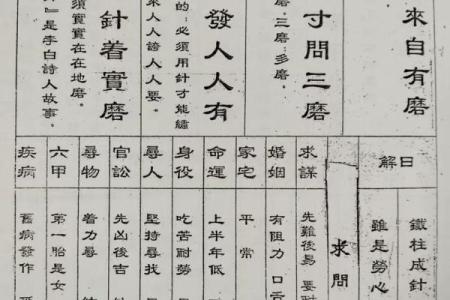 來自有磨
寸問三磨
磨。三磨：多磨。
發人人有
的：必須用針才能繡
來人人誇人人要。
針着實磨
須實實在在地磨。
』是李白詩人故事。
日解
鐵柱成針
雖是勞心
求問
求謀 先難後易 要耐
婚姻 有阻力 口
家宅 平常
命運 上半年低
身役 吃苦耐勞
尋人 堅持尋找
官訟 先凶後吉
尋物 着力尋
六甲 第一胎是女
疾病 舊病發作